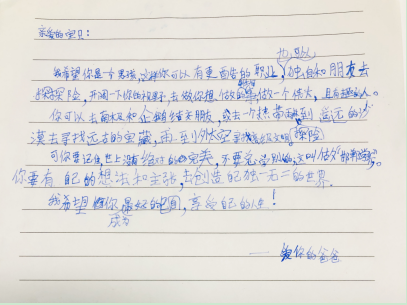 亲爱的宝贝：
我希望你是一个男孩，这样你可以有更酷的职业，独自和朋友去
探险，开阔一下你的视野，去做你想做的事，做一个伟大，且有趣的人。
你可以去南极和企鹅结交朋友，或去一个热带雨林到 荒无的沙
漠去寻找远古的宝藏，再到外太空寻找高级文明。探险
可你要记住，世上没有绝对的完美，不要羡慕别人的，这叫做
你要有自己的想法和主张，去创造自己独一无二的世界。
我希望 你 成为 最好的自己，享受自己的人生！
—— 爱你的爸爸